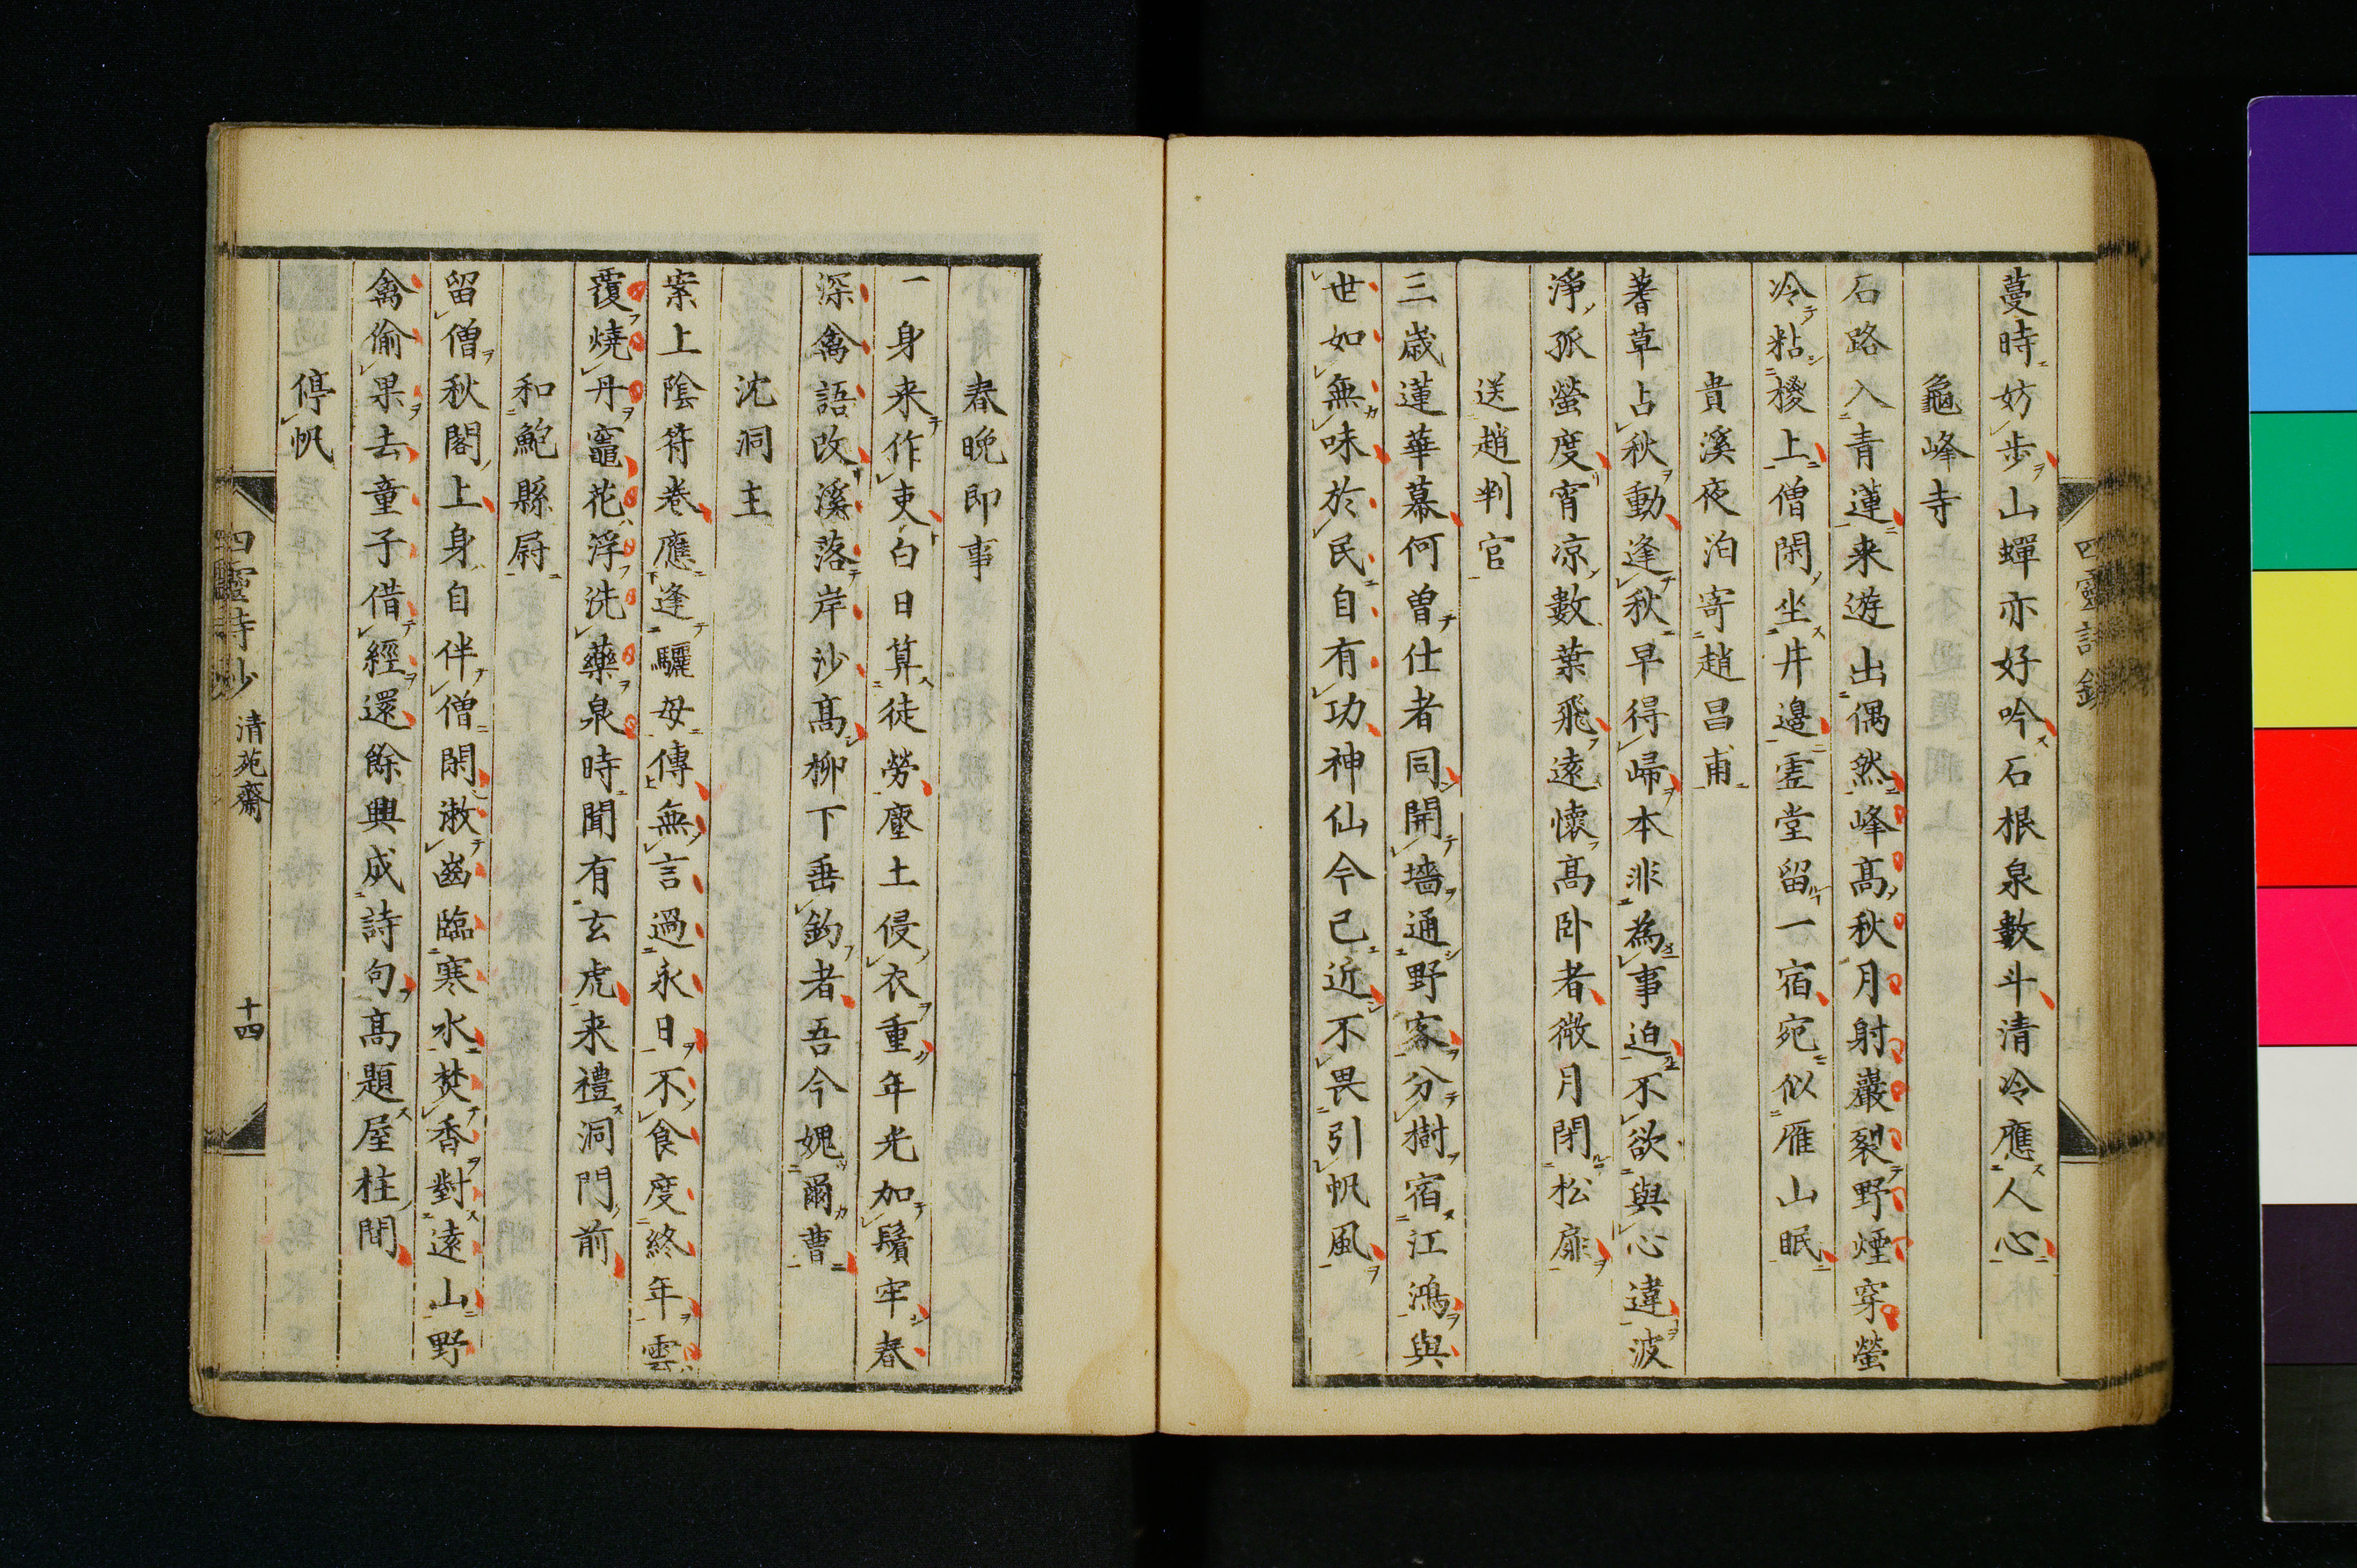 蔓時妨步山蟬亦好吟石根泉數斗清冷應人心
龜峰寺
石路入青蓮来遊出偶然峰高秋月射巖裂野煙穿螢
冷粘椶上僧閑坐井邊虛堂留一宿宛似雁山眠
貴溪夜泊寄趙昌甫
蓍草占秋動逢秋早得歸本非為事迫不欲與心違波
淨孤螢度宵凉數葉飛遠懷高卧者微月閉松扉
送趙判官
三歳蓮華幕何曾仕者同開墻通野客分樹宿江鴻與
世如無味於民自有功神仙今已近不畏引帆風
春晚即事
一身来作吏白日算徒勞塵土侵衣重年光加鬢牢春
深禽語改溪落岸沙高柳下垂釣者吾今媿爾曹
沈洞主
案上陰符卷應逢驪母傳無言過永日不食度終年雲
覆燒丹竈花浮洗藥泉時聞有玄虎来禮洞門前
和鮑縣尉
留僧秋閣上身自伴僧閑漱齒臨寒水焚香對遠山野
禽偷果去童子借經還餘興成詩句高題屋柱間
停帆
四靈詩鈔
清苑齋
十四